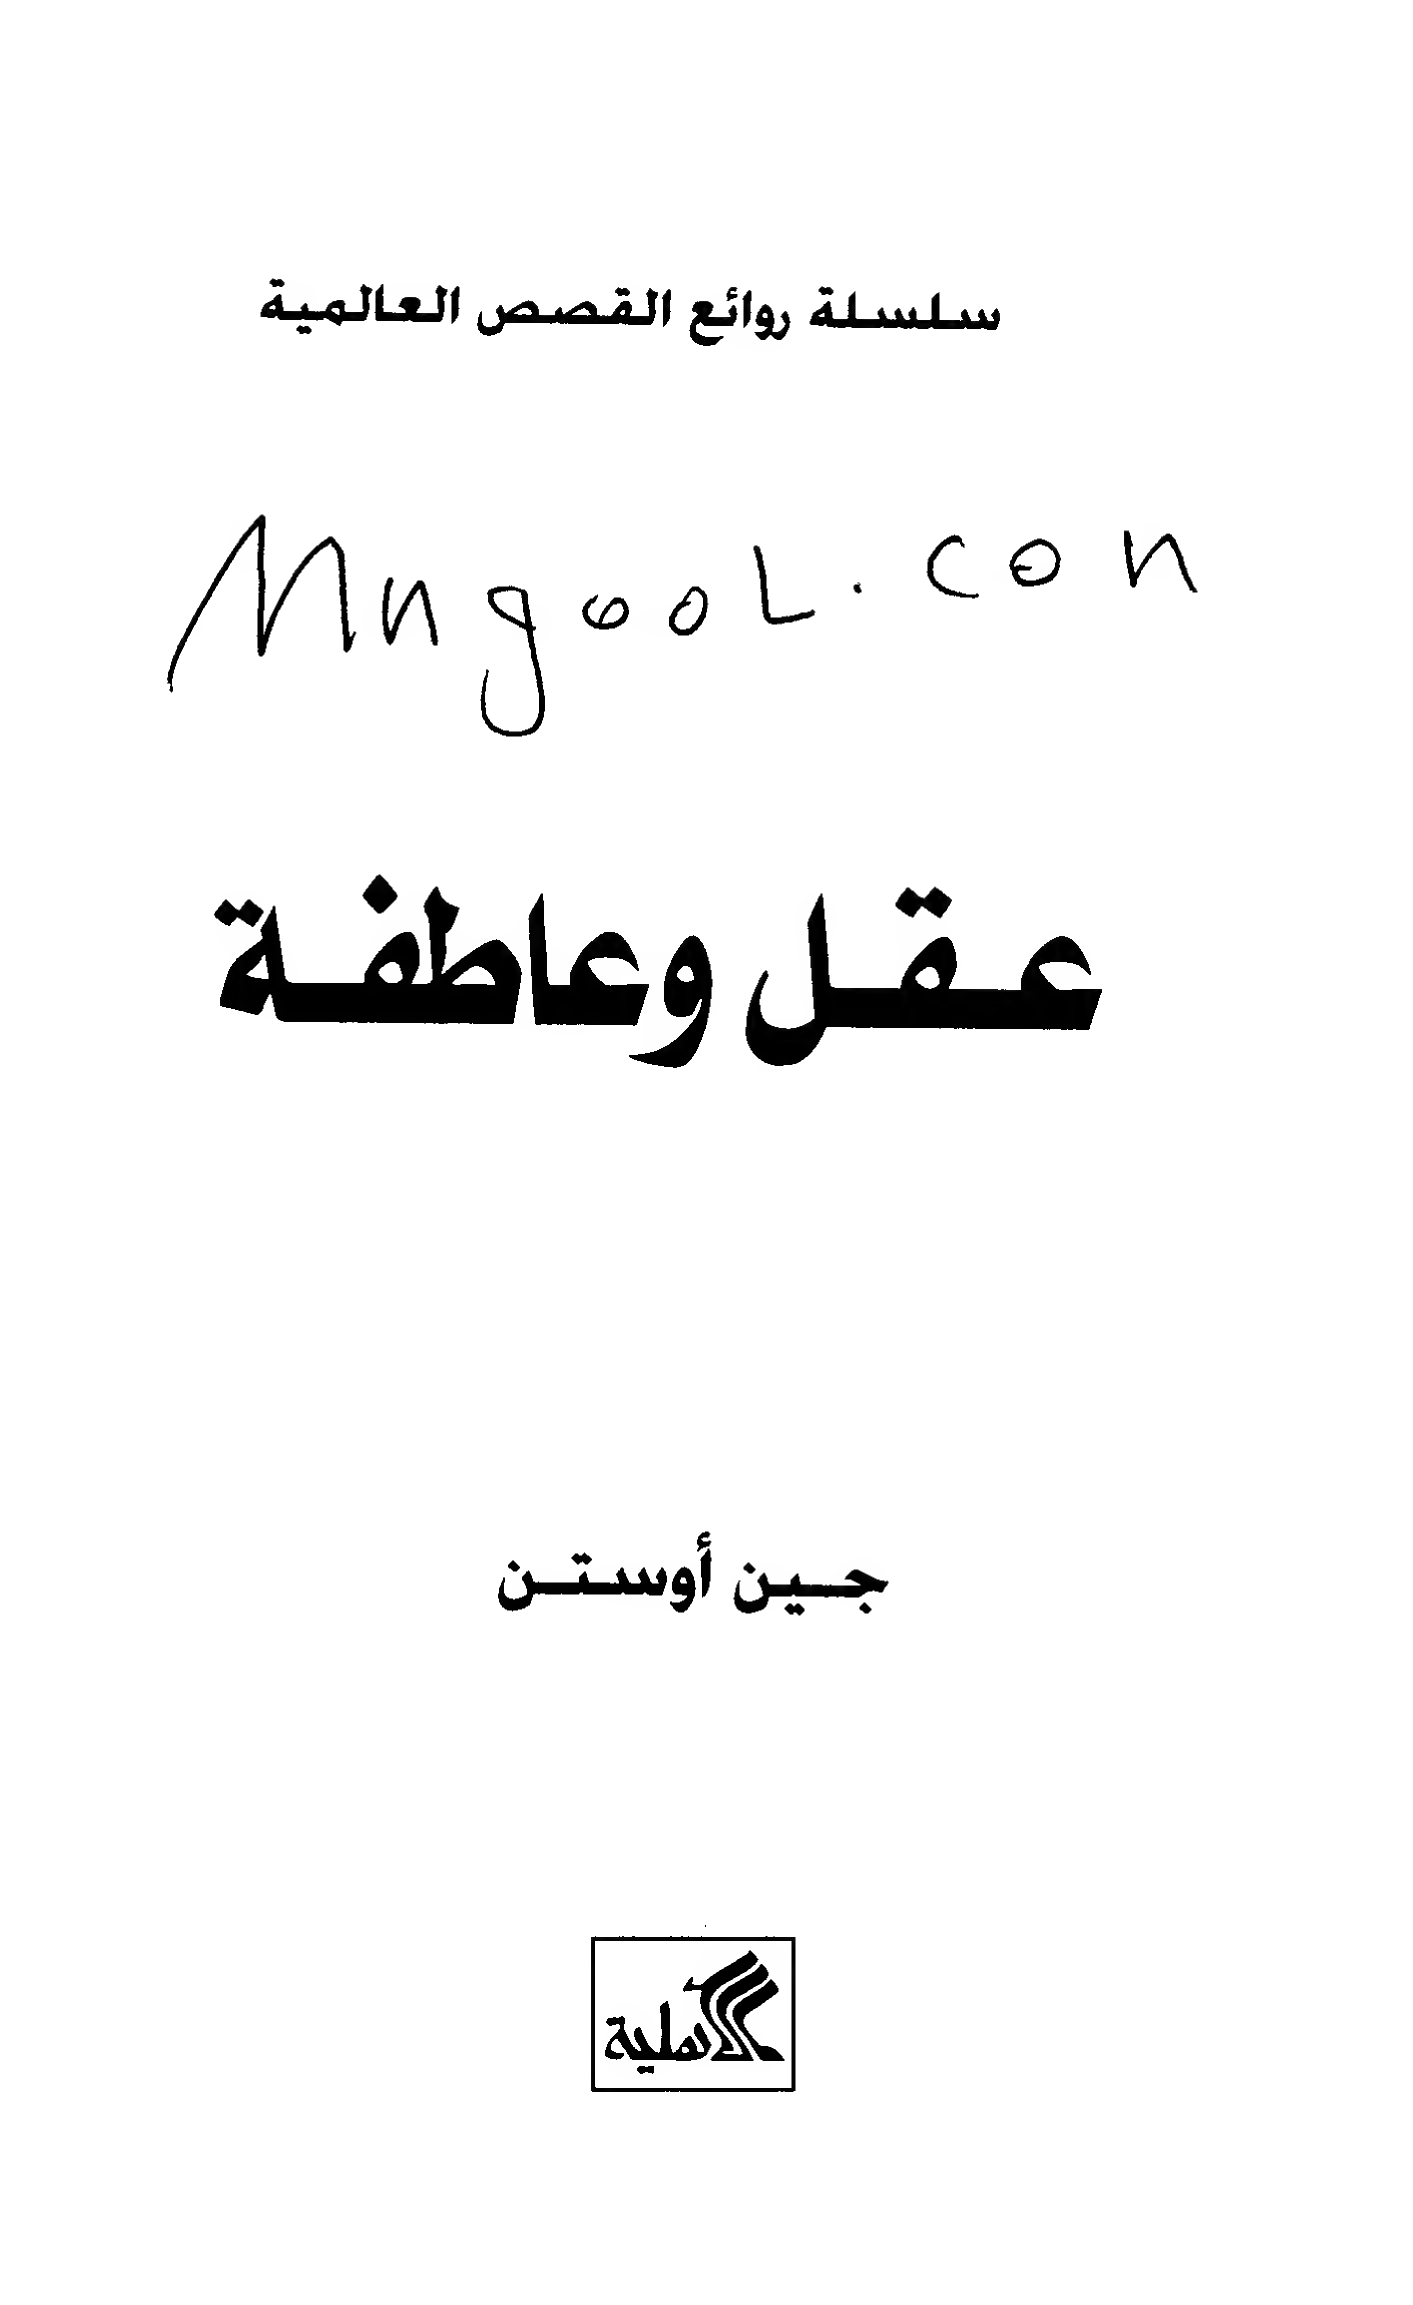 سلسلة روائع القصص العالمية
Mngool.con
عقل وعاطفة
جين أوستن
الأهلية